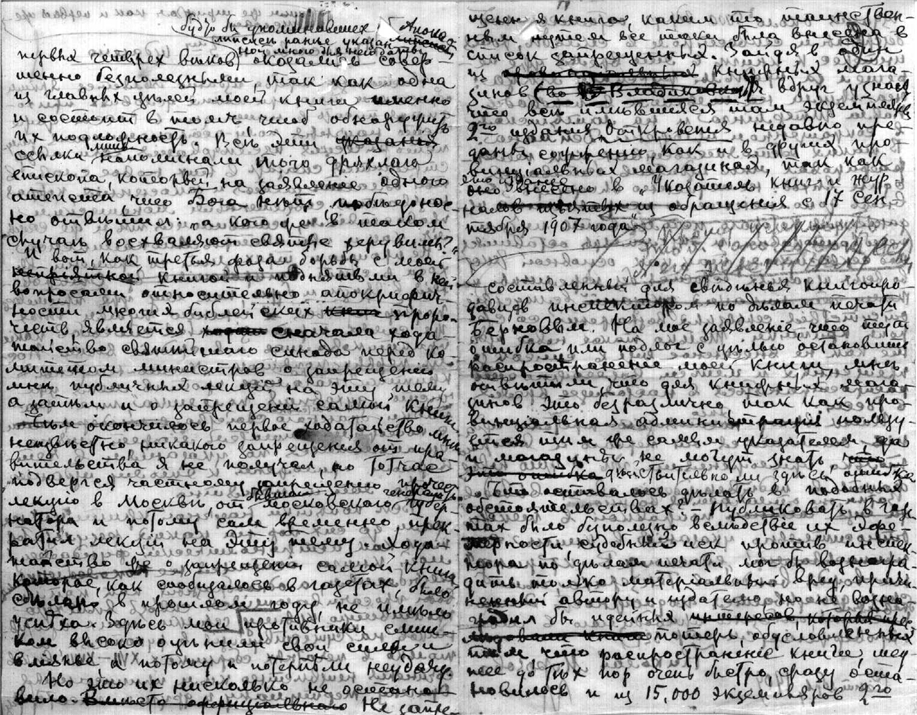 будто бы упоминавших Апока-
липсис ранее указан-
ной мною для него даты
первых четырех веков) оказались совер-
шенно бесполезными так как одна
из главных целей моей книги именно
и состоит в том чтоб обнаружить
их подложность. Все эти
ссылки лишь напоминали того дряхлого
епископа, который на заявление одного
атеиста что Бога нет победонос-
но ответил: а кого-же в таком
случае восхваляют святые херувимы?
И вот, как третья фаза борьбы с моей
книгой и поднятыми в ней
вопросами относительно апокрифич-
ности многих библейских проро-
честв является сначала хода-
тайство святейшего синода перед ко-
митетом министров о запрещении
мне публичных лекций на эту тему
а затем и о запрещении самой книги
Чем окончилось первое ходатайство мне
неизвестно, никакого запрещения от пра-
вительства я не получал, но тотчас
подвергся частному запрещению прочесть
лекцию в Москве от бывшего московского генерал губер-
натора и потому сам временно прек-
ратил лекции на эту тему. Хода-
тайство же о запрещении самой книги
которое, как сообщалось в газетах, было
сделано в прошлом году не имело
успеха. Здесь мои противники слиш-
ком высоко оценили свои силы и
влияние а потому и потерпели неудачу.
Но это их нисколько не остано-
вило. Вместо официального Не запре-
щенная книга каким то таинствен-
ным путем все таки была внесена в
список запрещенных. Зайдя в один
из книжных мага-
зинов (во Владимире) я вдруг узнаю
что все имевшиеся там экземпляры
2го издания Откровения недавно пре-
даны сожжению, как и в других про-
винциальных магазинах, так как
оно внесено в "Указатель книг и жур-
налов изъятых из обращения с 17 сен-
тября 190 года"
составленный для сведения книгопро-
давцев инспектором по делам печати
На мое заявление что тут
ошибка или подлог с целью остановить
распространение моей книги, мне
ответили что для книжных мага-
зинов это безразлично так как про-
винциальная администрация пользу-
ется тем же самым указателем
и магазины не могут знать,
действительно ли здесь ошибка
Что оставалось делать в подобных
обстоятельствах? – Публиковать в газе-
тах было бесполезно вследствие их эфе-
мерности, судебный иск против инспек-
тора по делам печати мог бы вознагра-
дить только материальный вред причи-
ненный автору и издателю но не возна-
градил бы идейных потерь, обусловленных
тем что распространение книги, шед-
шее до тех пор очень быстро, сразу оста-
новилось и из 15,000 экземпляров 2го